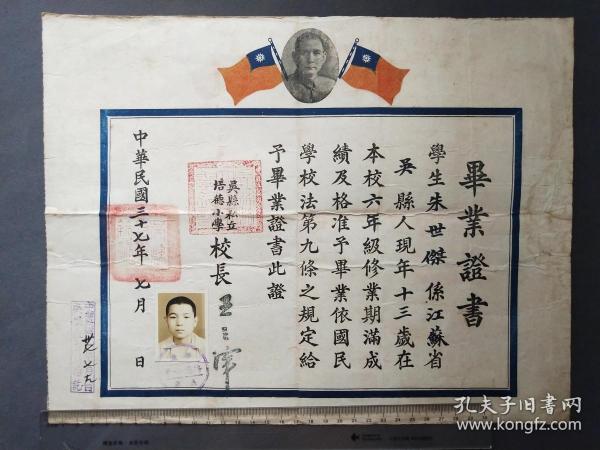 畢業證書
學生朱世傑係江蘇省
吳縣人現年十三歲在
本校六年級修業期滿成
績及格准予畢業依國民
學校法第九條之規定給
予畢業證書此證
吳縣私立
培德小學
校長
中華民國三十七年七月　日
孔夫子旧书网
www.kongfz.com